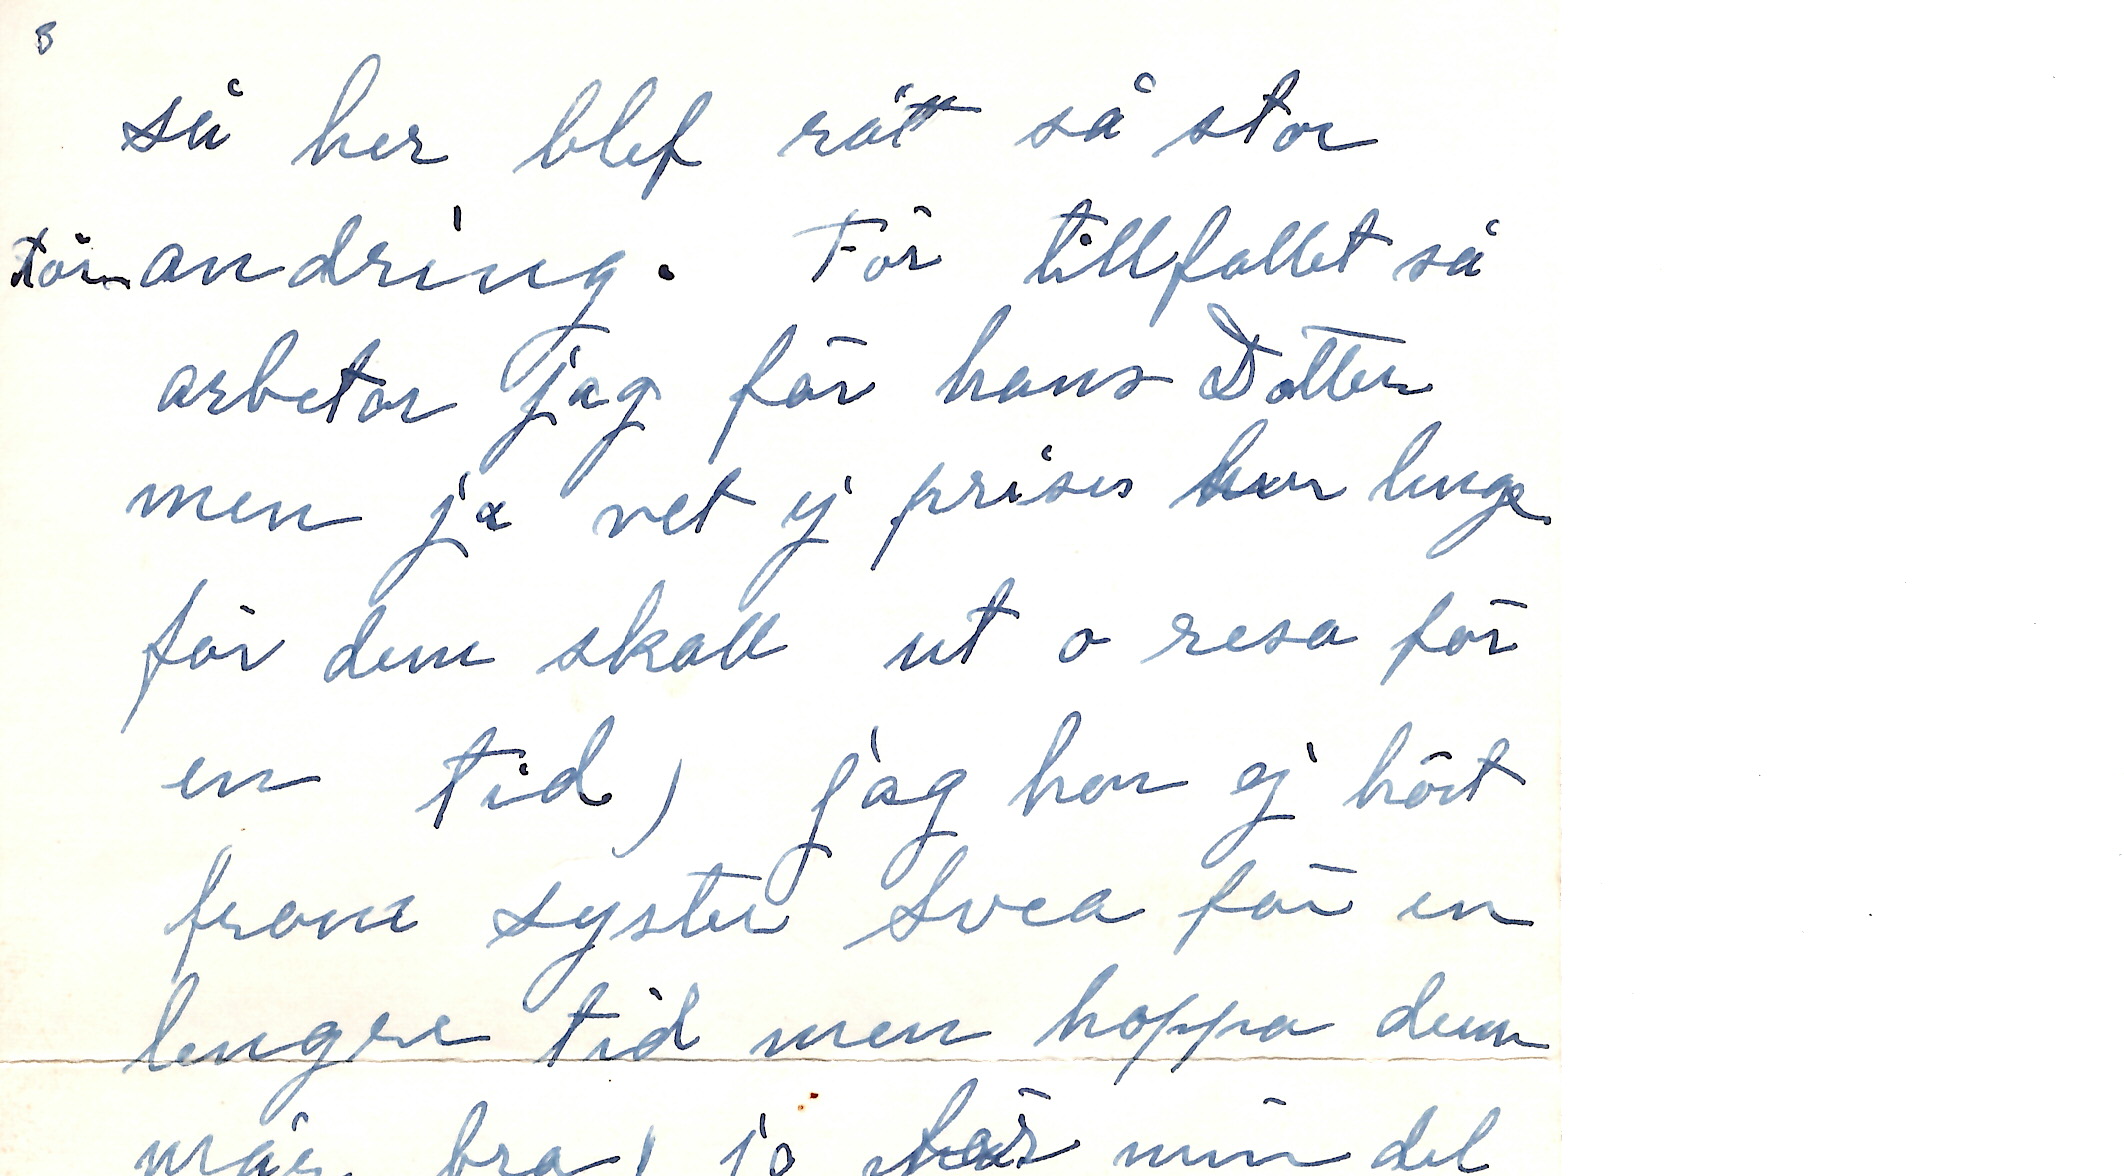 3
så her blef rätt så stor
förandring. För tillfallet så
arbetar jag för hans Dotter
men ja vet ej prisis hur lenge
för dem skall ut o resa för
en tid, jag har ej hört
from syster Svea för en
lengre tid men hoppa dem
mår bra, ja för min del